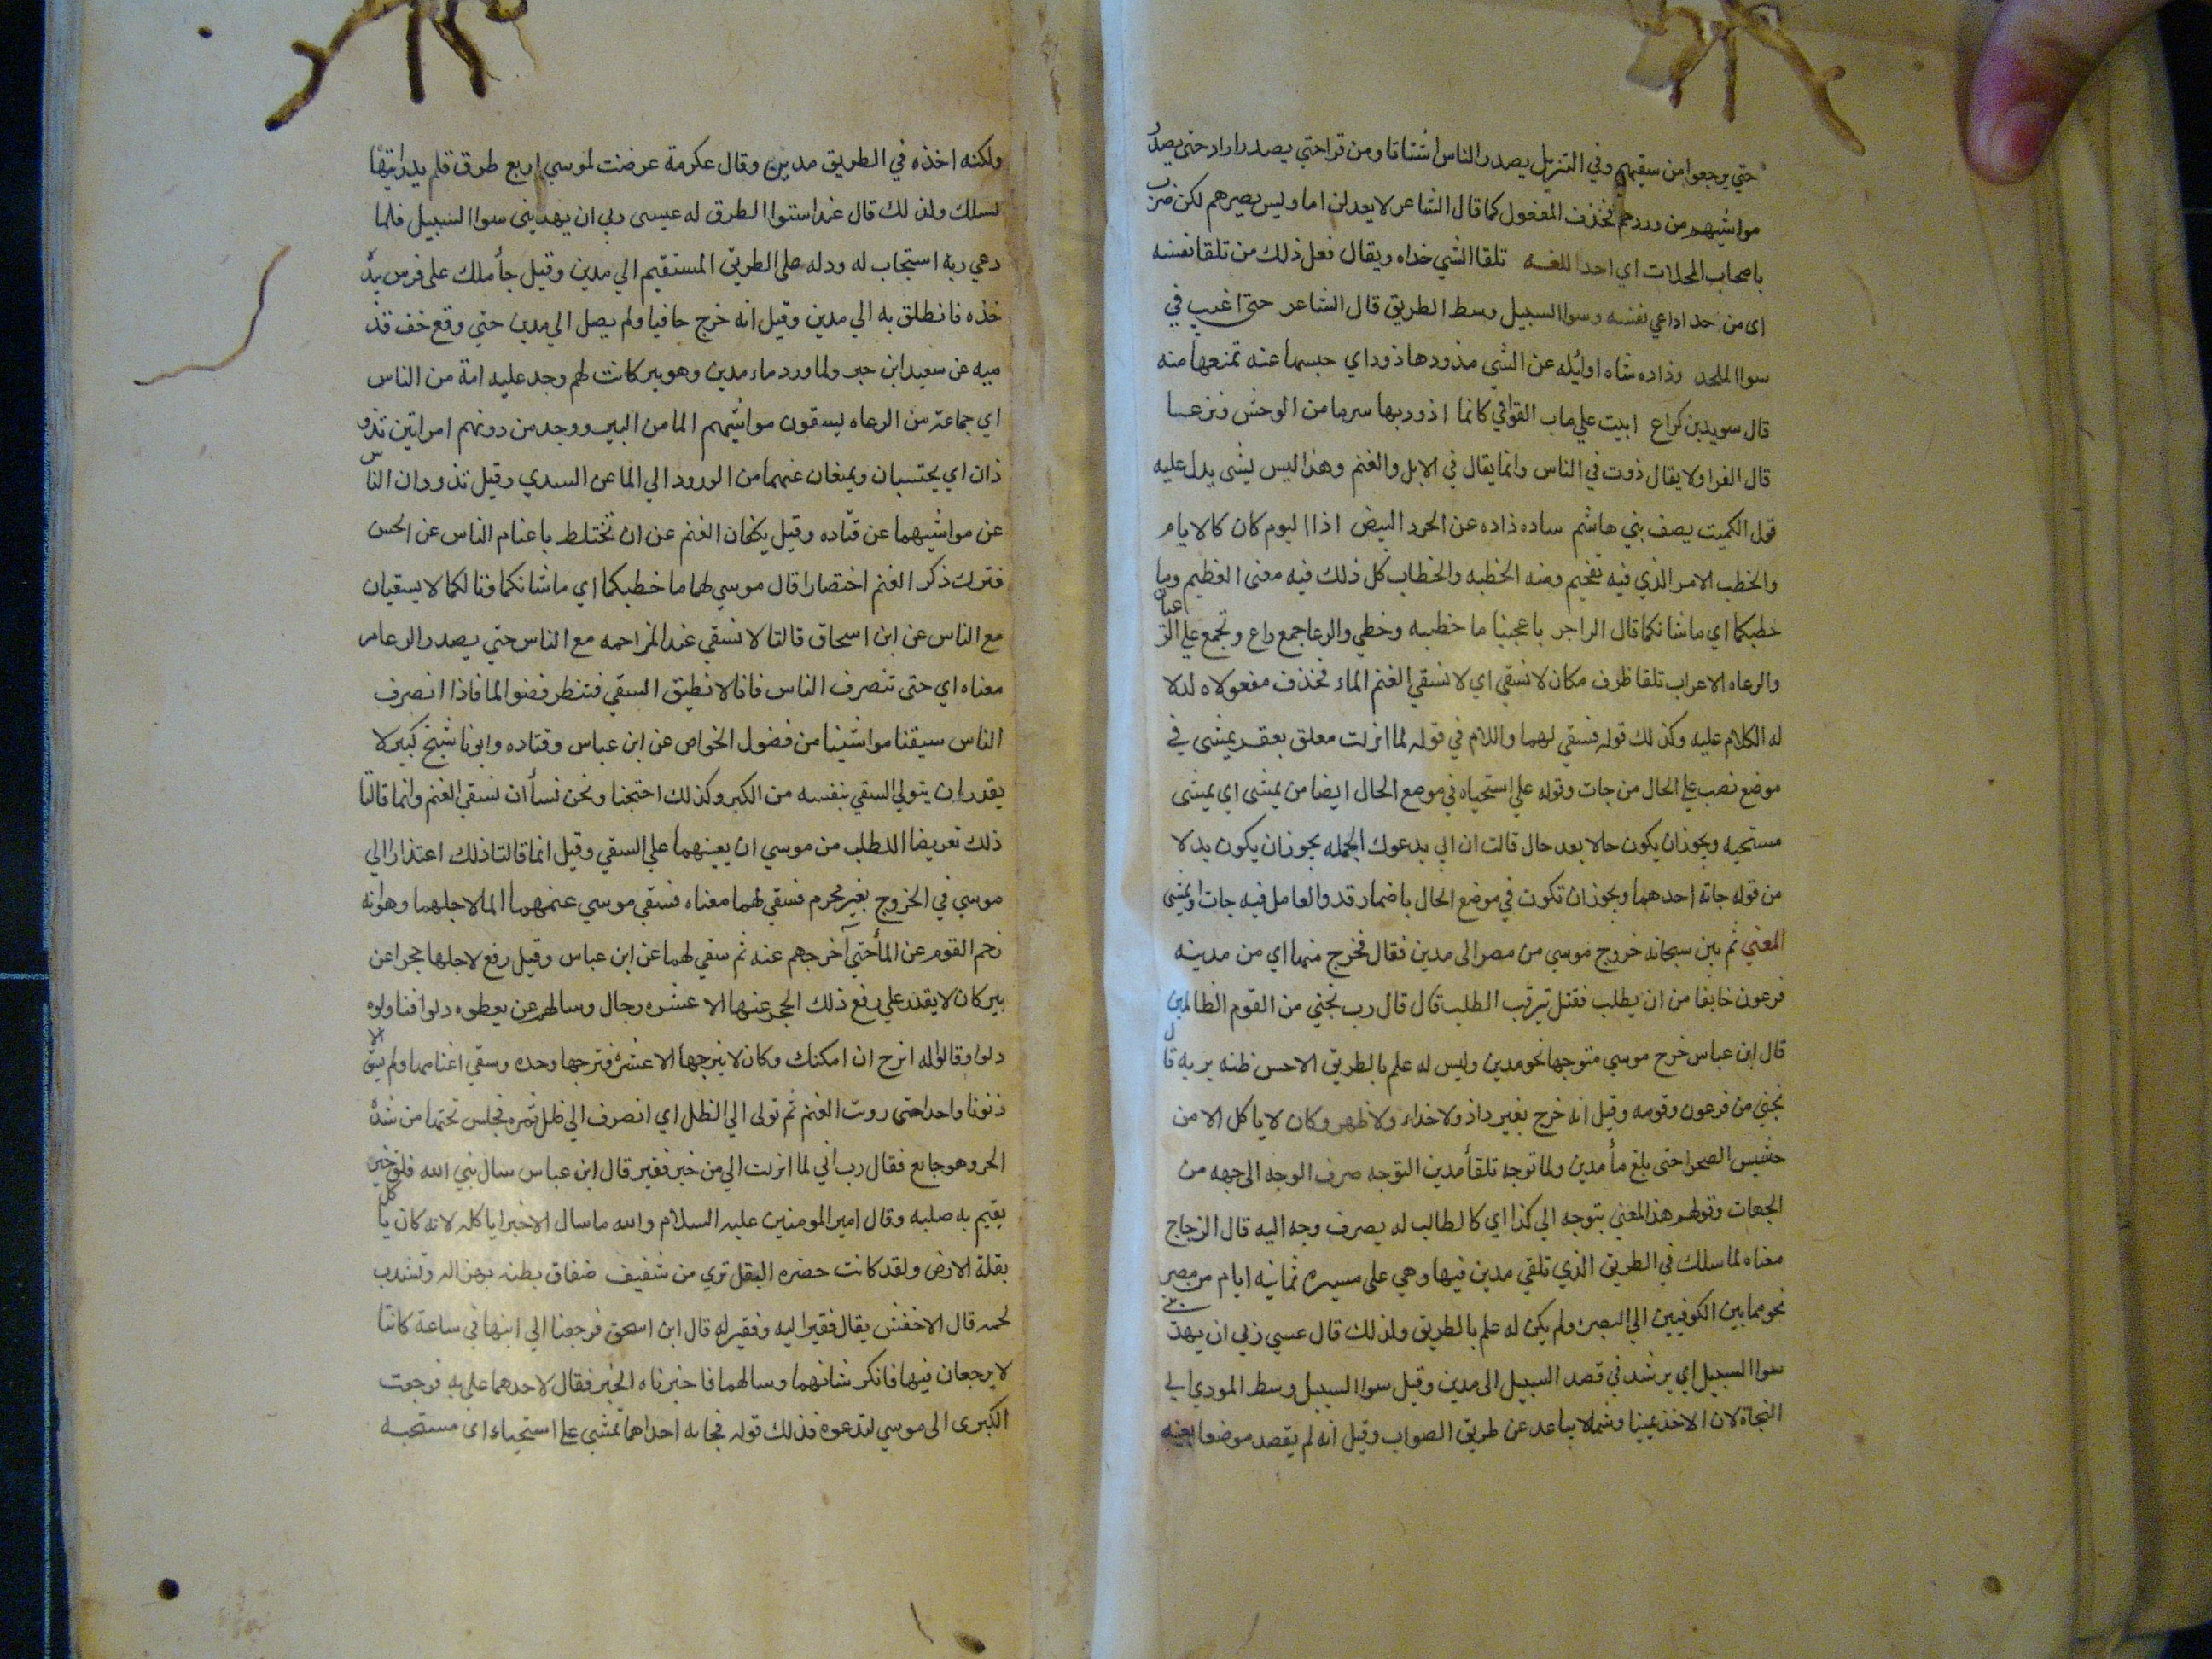 حتي يرجعوا من سقيهم وفي التنزيل يصدر الناس اشتاتا ومن قرا حتي يصدر اراد حتى يصدر
مواشيهم من وردهم فحذف المفعول كما قال الشاعر لا يعدلن اما وليس بصيرهم لكن ضرب
باصحاب المحلات اي احدا للغه تلقا الشي حذاه ويقال فعل ذلك من تلقا نفسه
اى من حد اداعي نفسه وسوا السبيل وسط الطريق قال الشاعر حتى اغيب في
سوا الملحد وذاده شاه او ابله عن الشي مذودها ذودا اي حبسها عنه تمنعها منه
قال سويد بن كراع ابيت علي باب القوافي كانما اذود بها سربا من الوحش نزعا
قال الفرا ولا يقال ذوت في الناس وانما يقال في الابل والغنم وهذا ليس بشى يدل عليه
قول الكميت يصف بني هاشم ساده ذاده عن الخرد البيض اذا اليوم كان كالايام
والخطب الامر الذي فيه تفخيم ومنه الخطبه والخطاب كل ذلك فيه معنى العظيم وما
خطبكما اي ما شانكما قال الراجز يا عجبنا ما خطبه وخطي والرعا جمع راع وتجمع علي الرعيان
والرعاه الاعراب تلقا ظرف مكان لا نسقي اي لا نسقي الغنم الماء فحذف مفعولاه لدلا
له الكلام عليه وكذلك قوله فسقي لهما واللام في قوله لما انزلت معلق بفقير يمشى في
موضع نصب علي الحال من جات وقوله علي استحياه في موضع الحال ايضا من يمشى اي يمشى
مستحيه ويجوز ان يكون حالا بعد حال قالت ان ابي يدعوك الجمله يجوز ان يكون بدلا
من قوله جاته احدهما ويجوز ان تكون في موضع الحال باضمار قد والعامل فيه جات او يمشى
المعني ثم بين سبحانه خروج موسي من مصر الى مدين فقال فخرج منها اي من مدينه
فرعون خايفا من ان يطلب فقتل يترقب الطلب قال قال رب نجني من القوم الظالمين
قال ابن عباس خرج موسي متوجها نحو مدين وليس له علم بالطريق الا حسن ظنه بربه قال
نجني من فرعون وقومه وقيل انه خرج بغير زاد ولا حذاء ولا ظهر وكان لا ياكل الا من
حشيش الصحرا حتى بلغ مأ مدين ولما توجه تلقأ مدين التوجه صرف الوجه الى جهه من
الجهات وقولهم هذا المعني يتوجه الي كذا اي كالطالب له يصرف وجه اليه قال الزجاج
معناه لما سلك في الطريق الذي تلقي مدين فيها وهي على مسيره ثمانيه ايام من مصر
نحو مما بين الكوفيين الي البصره ولم يكن له علم بالطريق ولذلك قال عسي ربي ان يهديني
سوا السبيل اي يرشدني قصد السبيل الى مدين وقيل سوا السبيل وسط المودي الي
النجاة لان الاخذ يمينا وشمالا يباعد عن طريق الصواب وقيل انه لم يقصد موضعا بعينه
ولكنه اخذه في الطريق مدين وقال عكرمة عرضت لموسي اربع طرق فلم يدر ايتها
لسلك ولذلك قال عند استوا الطرق له عيسى ربي ان يهديني سوا السبيل فلما
دعي ربه استجاب له ودله علي الطريق المستقيم الي مدين وقيل جأ ملك على فرس بيده
خذه فانطلق به الي مدين وقيل انه خرج حافيا ولم يصل الي مدين حتي وقع خف قد
ميه عن سعيد ابن جبير ولما ورد ماء مدين وهو بير كانت لهم وجد عليه امة من الناس
اي جماعة من الرعاه يسقون مواشيهم الما من البير ووجد من دونهم امراتين تذو
ذان اي يحتبسان ويمنعان غنمهما من الورود الي الما عن السدي وقيل تذودان الناس
عن مواشيهما عن قتاده وقيل يكفان الغنم عن ان تختلط باغنام الناس عن الحسن
فترك ذكر الغنم اختصارا قال موسي لهما ما خطبكما اي ما شانكما وما لكما لا يسقيان
مع الناس عن ابن اسحاق قالتا لا نسقي عند المزاحمه مع الناس حتي يصدر الرعا مر
معناه اي حتى تنصرف الناس فانا لا نطيق السقي فننظر فضول الما فاذا انصرف
الناس سيقنا مواشينا من فضول الخواص عن ابن عباس وقتاده وابونا شيخ كبير لا
يقدر ان يتولي السقي بنفسه من الكبر وكذلك احتجنا ونحن نسأ ان نسقي الغنم وانما قالتا
ذلك تعريضا للطلب من موسي ان يعينهما علي السقي وقيل انما قالتا ذلك اعتذارا الي
موسي في الخروج بغير محرم فسقي لهما معناه فسقي موسي غنمهما الما لاجلهما وهو انه
زحم القوم عن المأ حتي اخرجهم عنه ثم سقي لهما عن ابن عباس وقيل رفع لاجلها حجرا عن
بير كان لا يقدر علي رفع ذلك الحجر عنها الا عشره رجال وسالهم ان يعطوه دلوا فناولوه
دلوا وقالوا له انزح ان امكنك وكان لا ينزحها الا عشره فنزحها وحده وسقي اغنامهما ولم يسق الا
ذنوبا واحدا حتى رويت الغنم ثم تولى الي الظل اي انصرف الي ظل ثمره فجلس تحتها من شده
الحر وهو جايع فقال رب اني لما انزلت الي من خير فقير قال ابن عباس سال نبي الله فلق خبز
يقيم به صلبه وقال امير المومنين عليه السلام والله ما سال الا خبزا ياكله لانه كان ياكل
بقلة الارض ولقد كانت خضره البقل تري من شفيف صفاق بطنه بهزاله وتشذب
لحمه قال الاخفش يقال فقير اليه وفقير له قال ابن اسحق فرجعنا الي ابيها في ساعة كانتا
لا يرجعان فيها فانكر شانهما وسالهما فاخبرناه الخبر فقال لاحدهما علي به فرجعت
الكبرى الى موسي لتدعوه فذلك قوله فجاته احداهما تمشي علي استحياء اى مستحيه